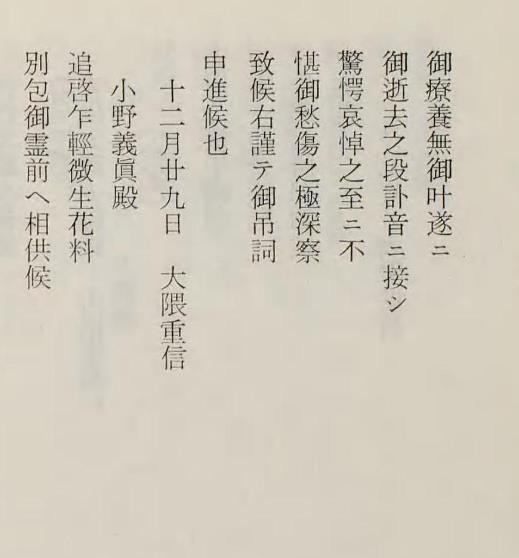 御療養無御叶遂ニ
御逝去之段訃音ニ接シ
驚愕哀悼之至ニ不
堪御愁傷之極深察
致候右謹テ御吊詞
申進候也
十二月廿九日　大隈重信
小野義眞殿
追啓乍輕微生花料
別包御霊前ヘ相供候